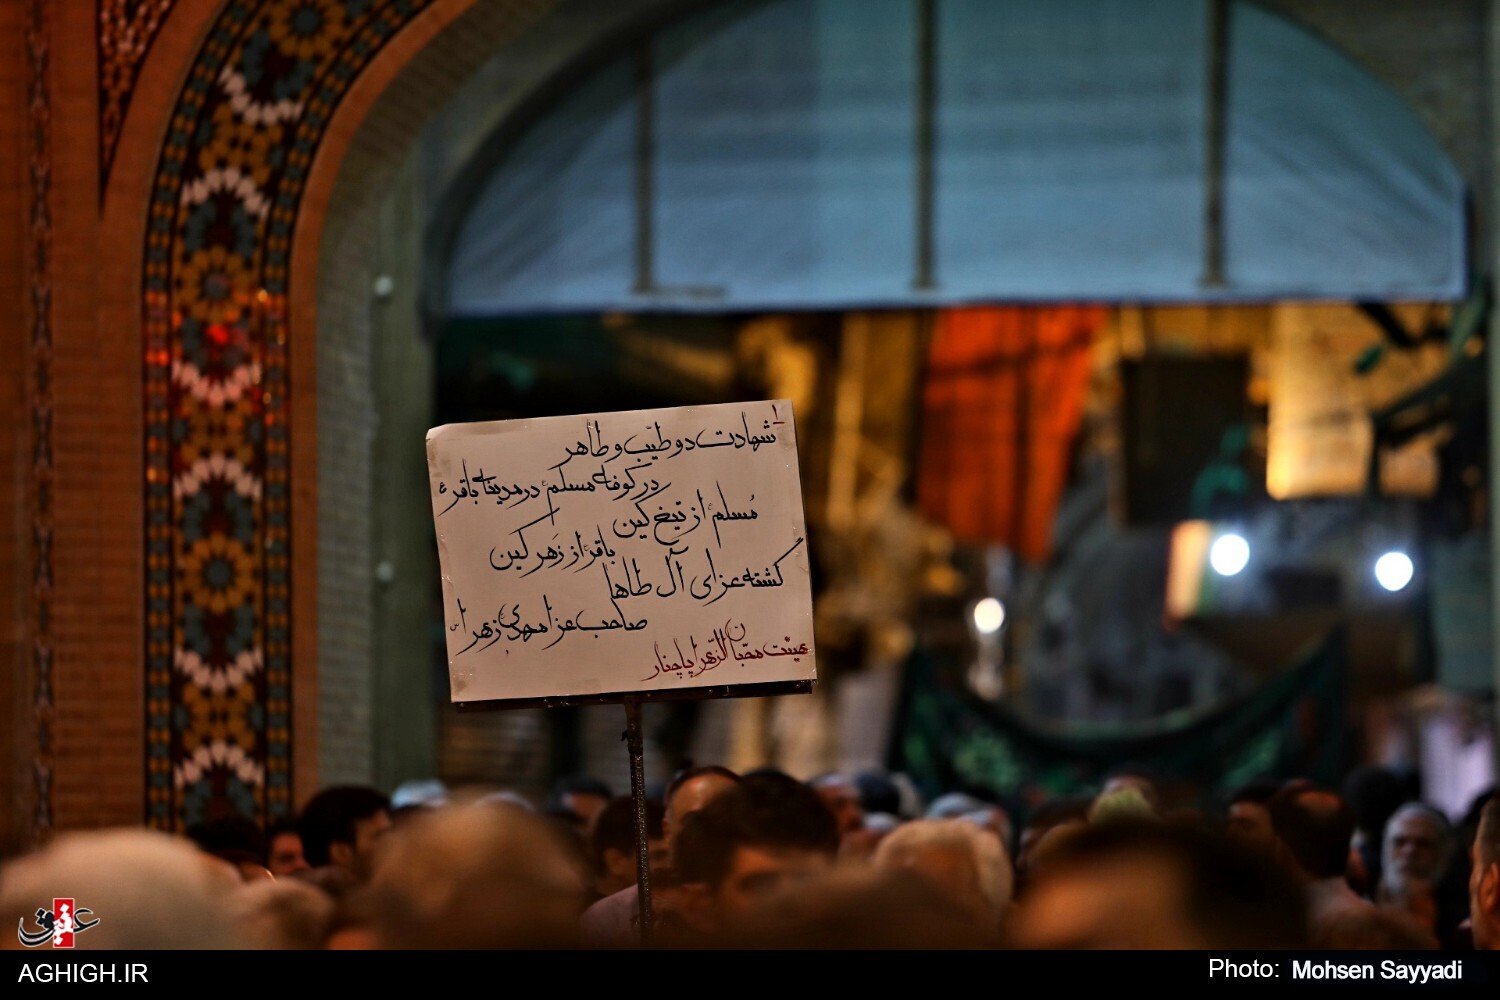 ۱
شهادت دو طیّب و طاهر
در کوفه مسلمؑ در مدینه باقرؑ
مُسلمؑ از تیغ کین
باقرؑ از زَهر کین
گشته عزای آل طاها
صاحب عزا مهدی زهراس
هیئت محبّان الزّهرا پاچنار
عقیق
AGHIGH.IR
Photo: Mohsen Sayyadi